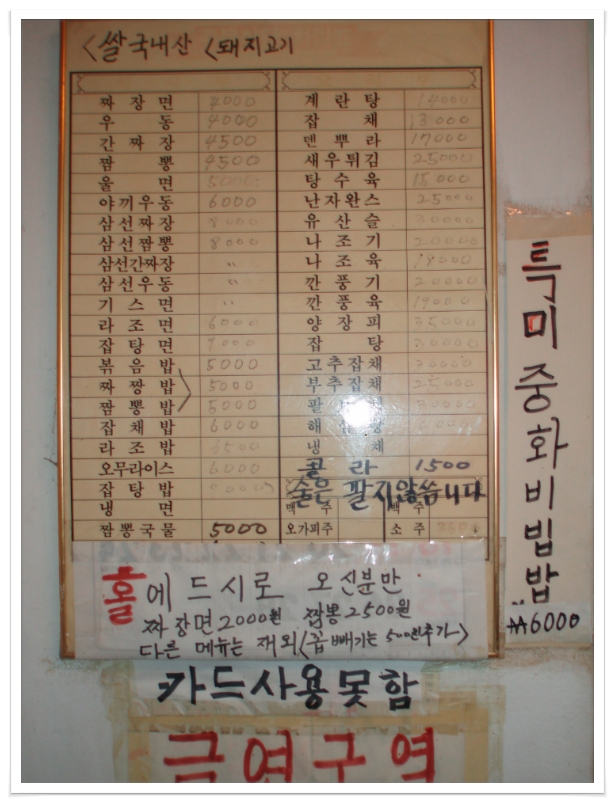 <쌀국내산 <돼지고기
짜장면 4000
우동 4000
간짜장 4500
짬뽕 4500
울면 5000
야끼우동 6000
삼선짜장 8000
삼선짬뽕 8000
삼선간짜장 〃
삼선우동 〃
기스면 〃
라조면 6000
잡탕면
볶음밥 5000
짜짱밥 5000
짬뽕밥 5000
잡채밥 6000
라조밥 6500
오무라이스 6000
잡탕밥
냉면
짬뽕국물 5000
계란탕 14000
잡채 13000
덴뿌라 17000
새우튀김 25000
탕수육 15000
난자완스 25000
유산슬 30000
나조기 20000
나조육 18000
깐풍기 20000
깐풍육 19000
양장피 35000
잡탕 30000
고추잡채 30000
부추잡채 25000
팔
해
냉채
콜라 1500
술은 팔지않씀니다
맥주
오가피주 소주
특미중화비빔밥
₩6000
홀에 드시로 오신분만
짜장면 2000원 짬뽕 2500원
다른 메뉴는 재외<꼽빼기는 500원추가>
카드사용못함
금연구역